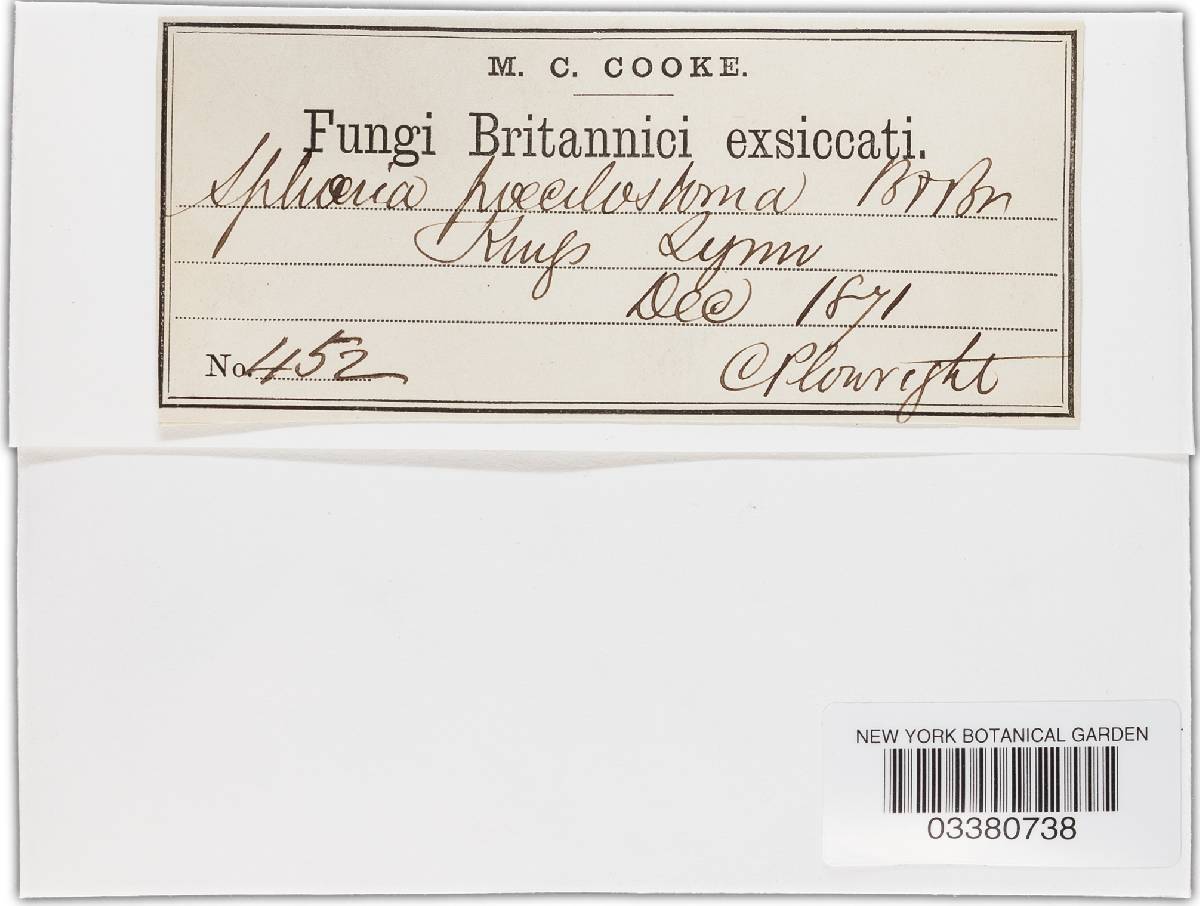 M. C. COOKE.
Fungi Britannici exsiccati.
Sphæria pœcilostoma B & Br
Kings Lynn
Dec 1871
No. 452
C Plowright
NEW YORK BOTANICAL GARDEN
03380738